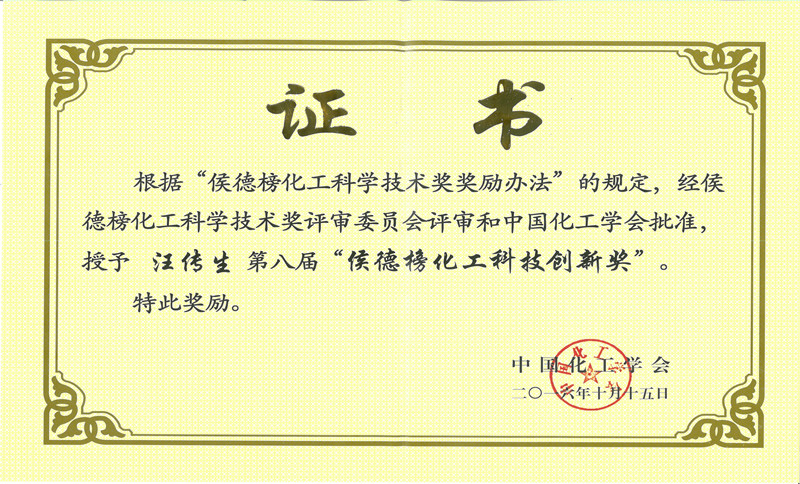 证 书
根据“侯德榜化工科学技术奖奖励办法”的规定，经侯
德榜化工科学技术奖评审委员会评审和中国化工学会批准，
授予 汪传生 第八届“侯德榜化工科技创新奖”。
特此奖励。
中国化工学会
二〇一六年十月十五日
中国化工学会